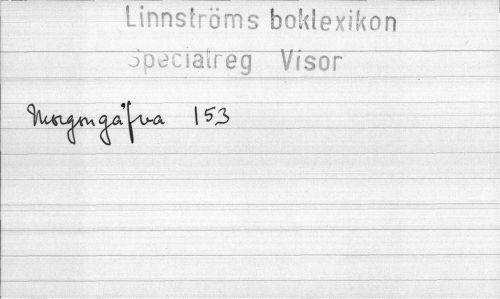 Linnströms boklexikon
Specialreg Visor
Morgongåfva 153